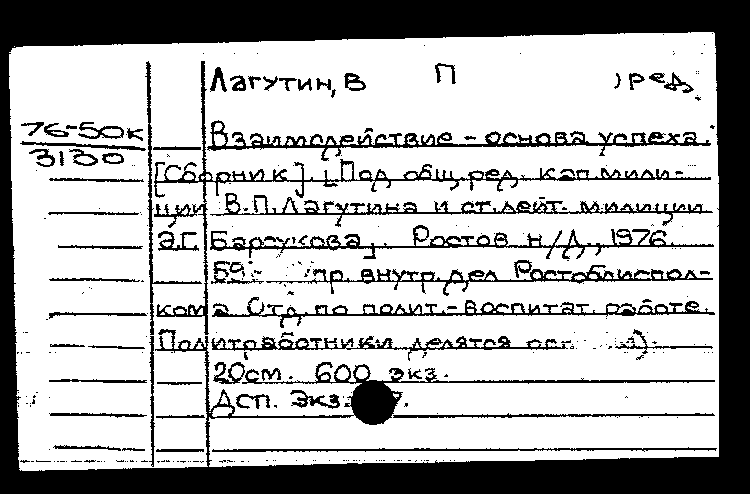 Лагутин, В П , ред.
76-50к
3130
Взаимодействие - основа успеха.
[Сборник]. [Под общ. ред. кап. мили-
ции В.П. Лагутина и ст. лейт. милиции
Э.Г. Барсукова]. Ростов н/Д., 1976.
59 пр. внутр. дел Ростоблиспол-
кома. Отд. по полит.-воспитат. работе.
Политработники делятся
20см. 600 экз.
Дсп. Экз. 7.